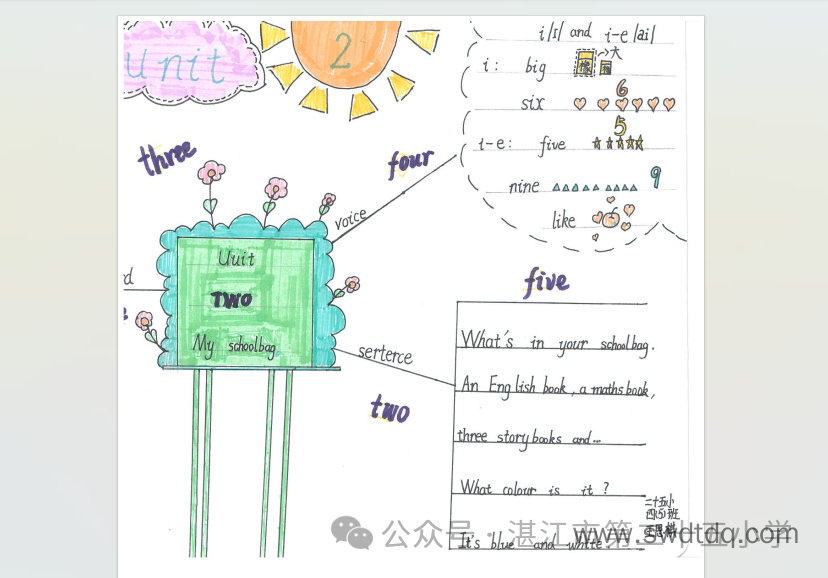 unit
2
i/ɪ/ and i-e/ai/
i: big
大
six
6
i-e: five
5
nine
9
like
three
four
voice
Uuit
TWO
My schoolbag
d
serterce
two
five
What's in your schoolbag.
An English book, a maths book,
three storybooks and...
What colour is it?
It's blue and white
二十五小
四(5)班
公众号·湛江市第二十五小学
www.swdtdq.com